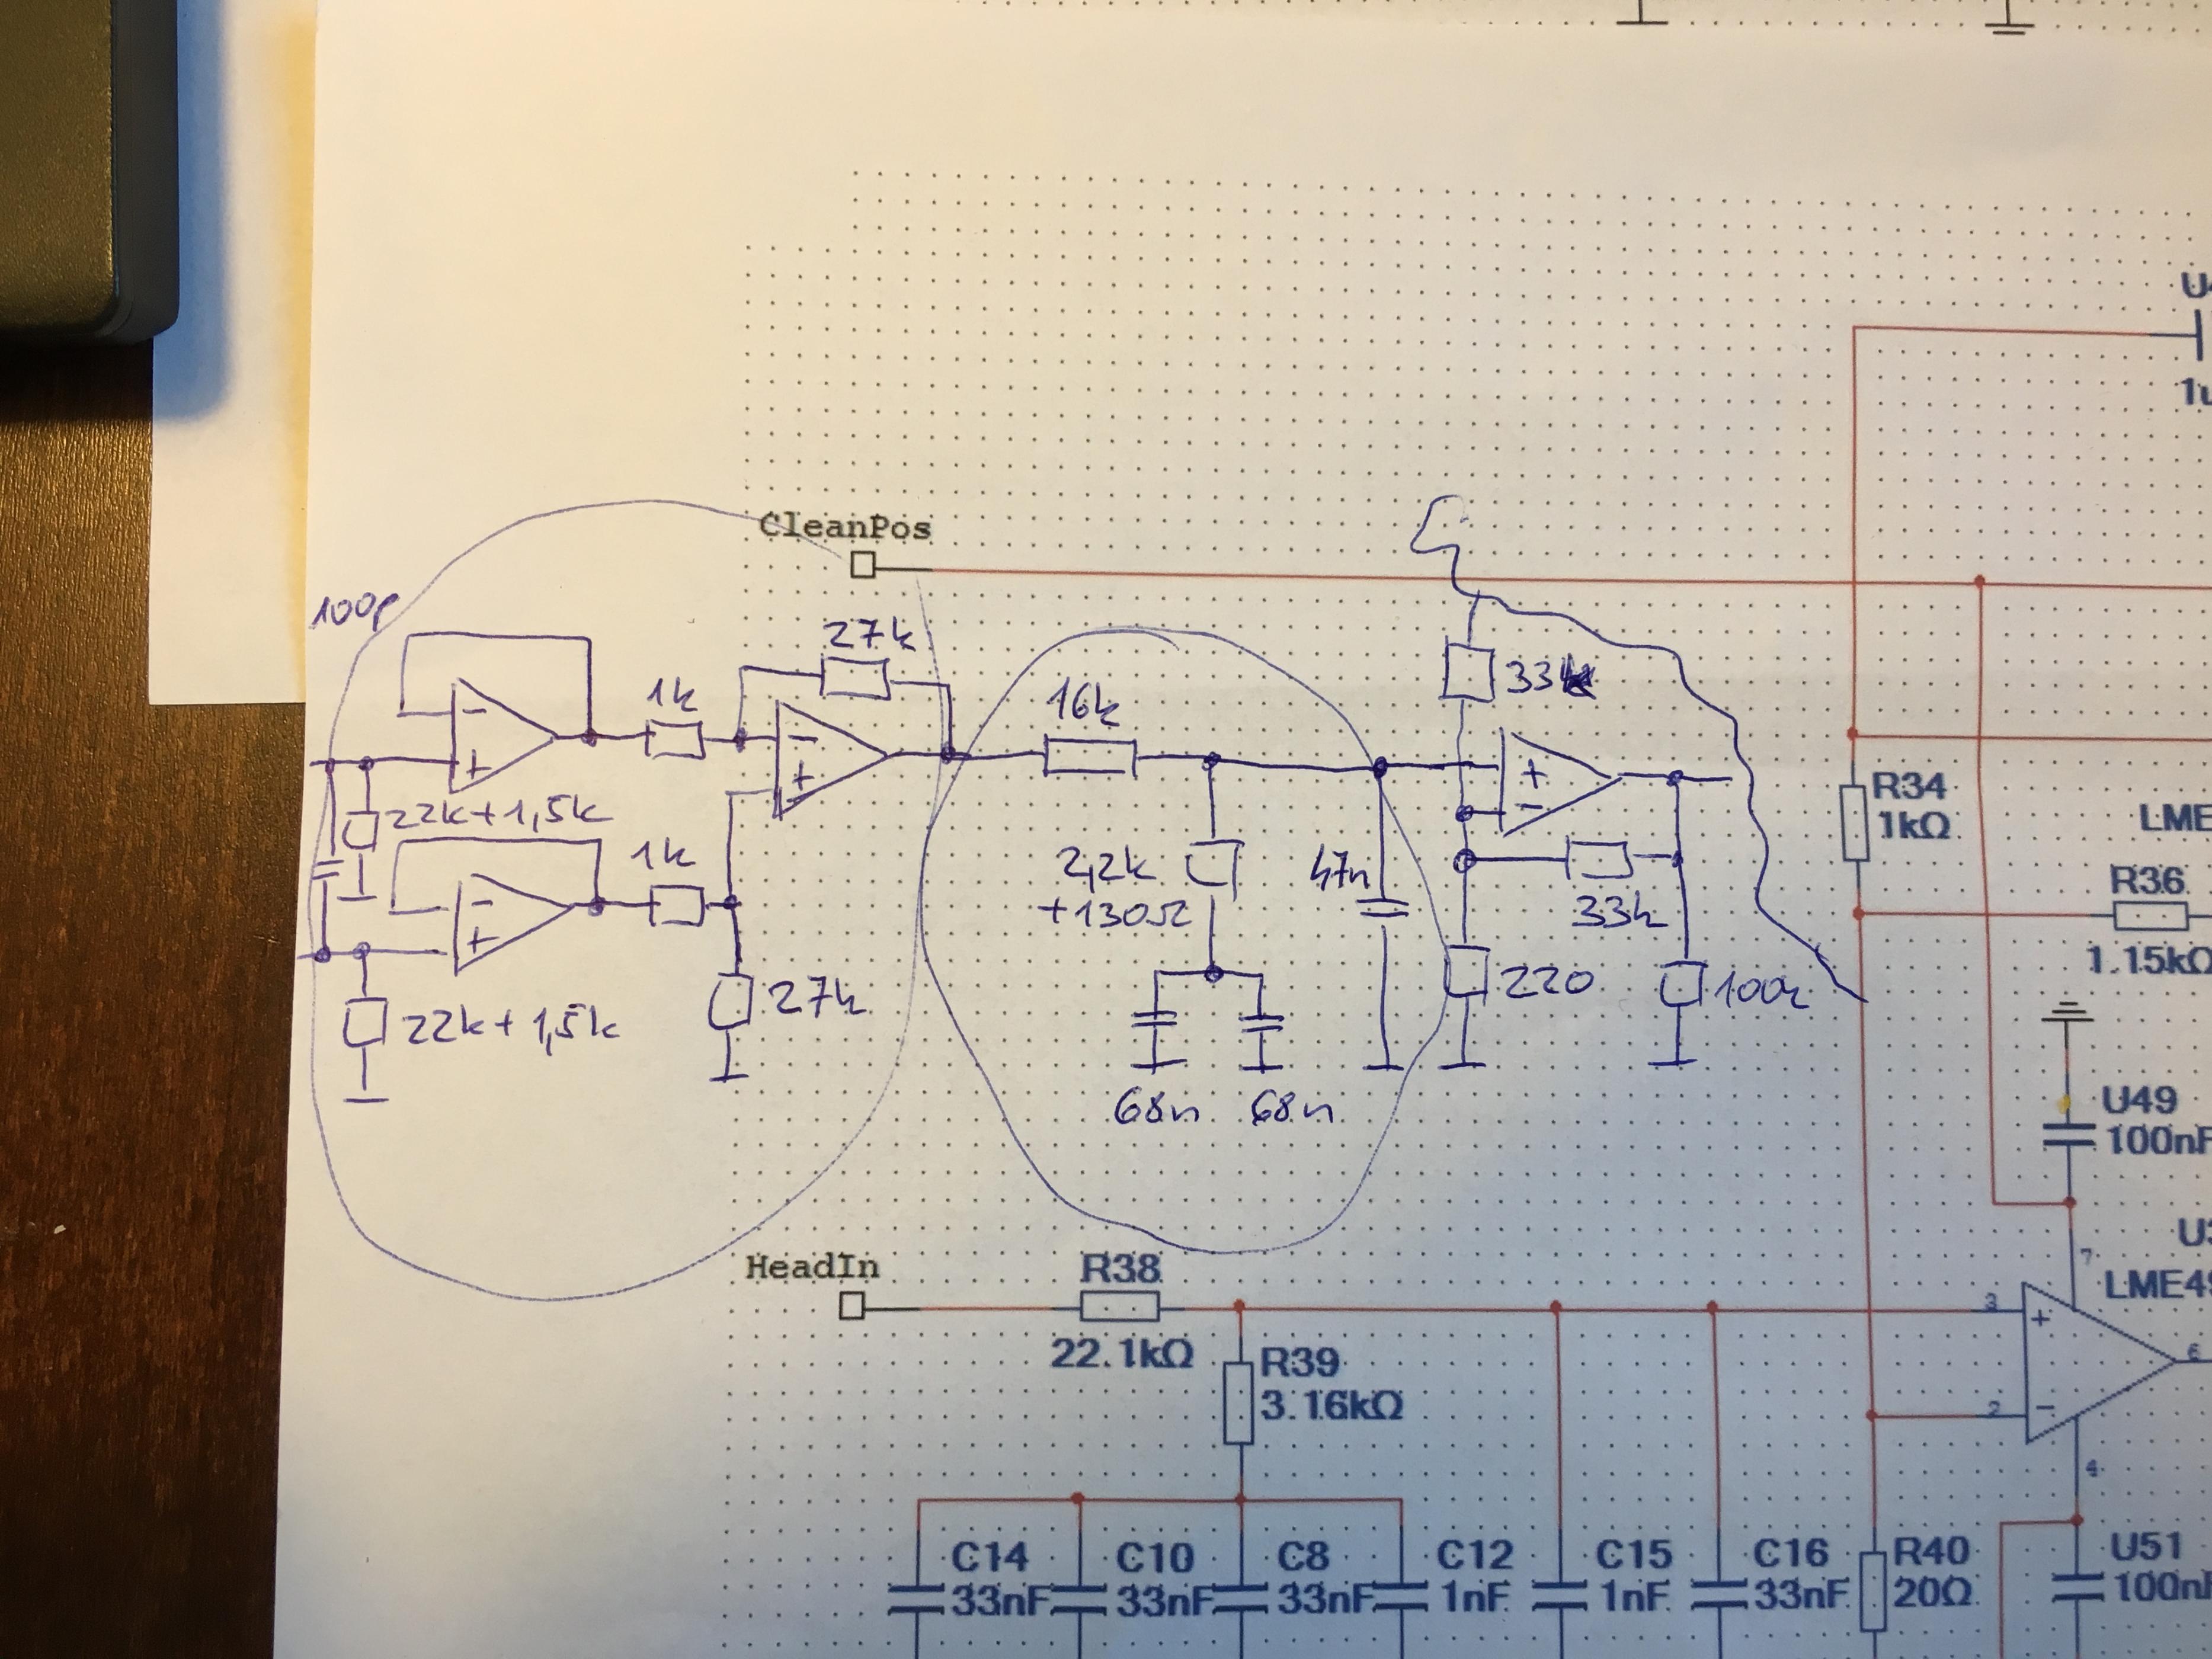 U4
1u
CleanPos
100p
27k
1k
16k
33k
22k+1,5k
R34
1kΩ
LME
1k
2,2k
+130Ω
47n
33k
R36
1.15kΩ
27k
220
100k
22k+1,5k
68n
68n
U49
100nF
HeadIn
R38
22.1kΩ
R39
3.16kΩ
3
2
7
6
4
+
-
U3
LME49
C14
33nF
C10
33nF
C8
33nF
C12
1nF
C15
1nF
C16
33nF
R40
20Ω
U51
100nF